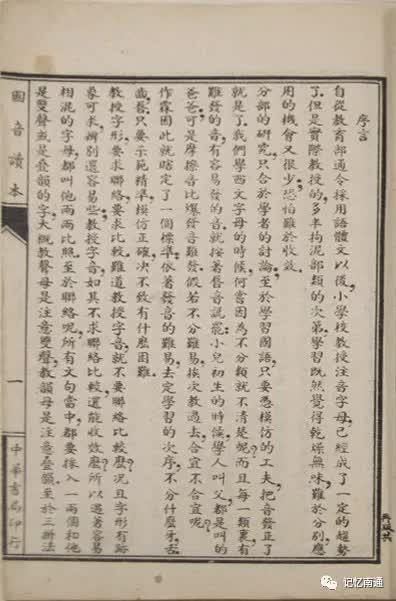 序言
自從教育部通令採用語體文以後,小學校教授注音字母,已經成了一定的趨勢
了.但是實際教授的,多半拘泥部類的次第,學習既然覺得乾燥無味,難於分別,應
用的機會又很少,恐怕難於收效.
分部的研究,只合於學者的討論;至於學習國語,只要憑模仿的工夫,把音發正了
就是了.我們學西文字母的時候,何嘗因為不分類就不清楚呢?而且每一類裏,有
難發的音,有容易發的音.就按著脣音說罷,小兒初生的時候,學人叫父,都是叫的
爸爸,可是摩擦音比爆發音難發,假若不分難易,挨次教過去,合宜不合宜呢?
作霖因此就瞎定了一個標準,依著發音的難易,去定學習的次序,不分什麼牙舌
齒脣,只要示範精準,模仿正確,決不致有什麼困難.
教授字形,要求聯絡,要求比較,難道教授字音,就不要聯絡比較麼?況且字形有跡
象可求,辨別還容易些,教授字音,如其不求聯絡比較,還能收效麼?所以遇著容易
相混的字母,都叫他兩兩比照.至於聯絡呢,所有文句當中,都要採入一兩個和他
是雙聲或是疊韻的字,大概教聲母是注意雙聲,教韻母是注意疊韻,至於三拼法
國音讀本
一
中華書局印行
記忆南通